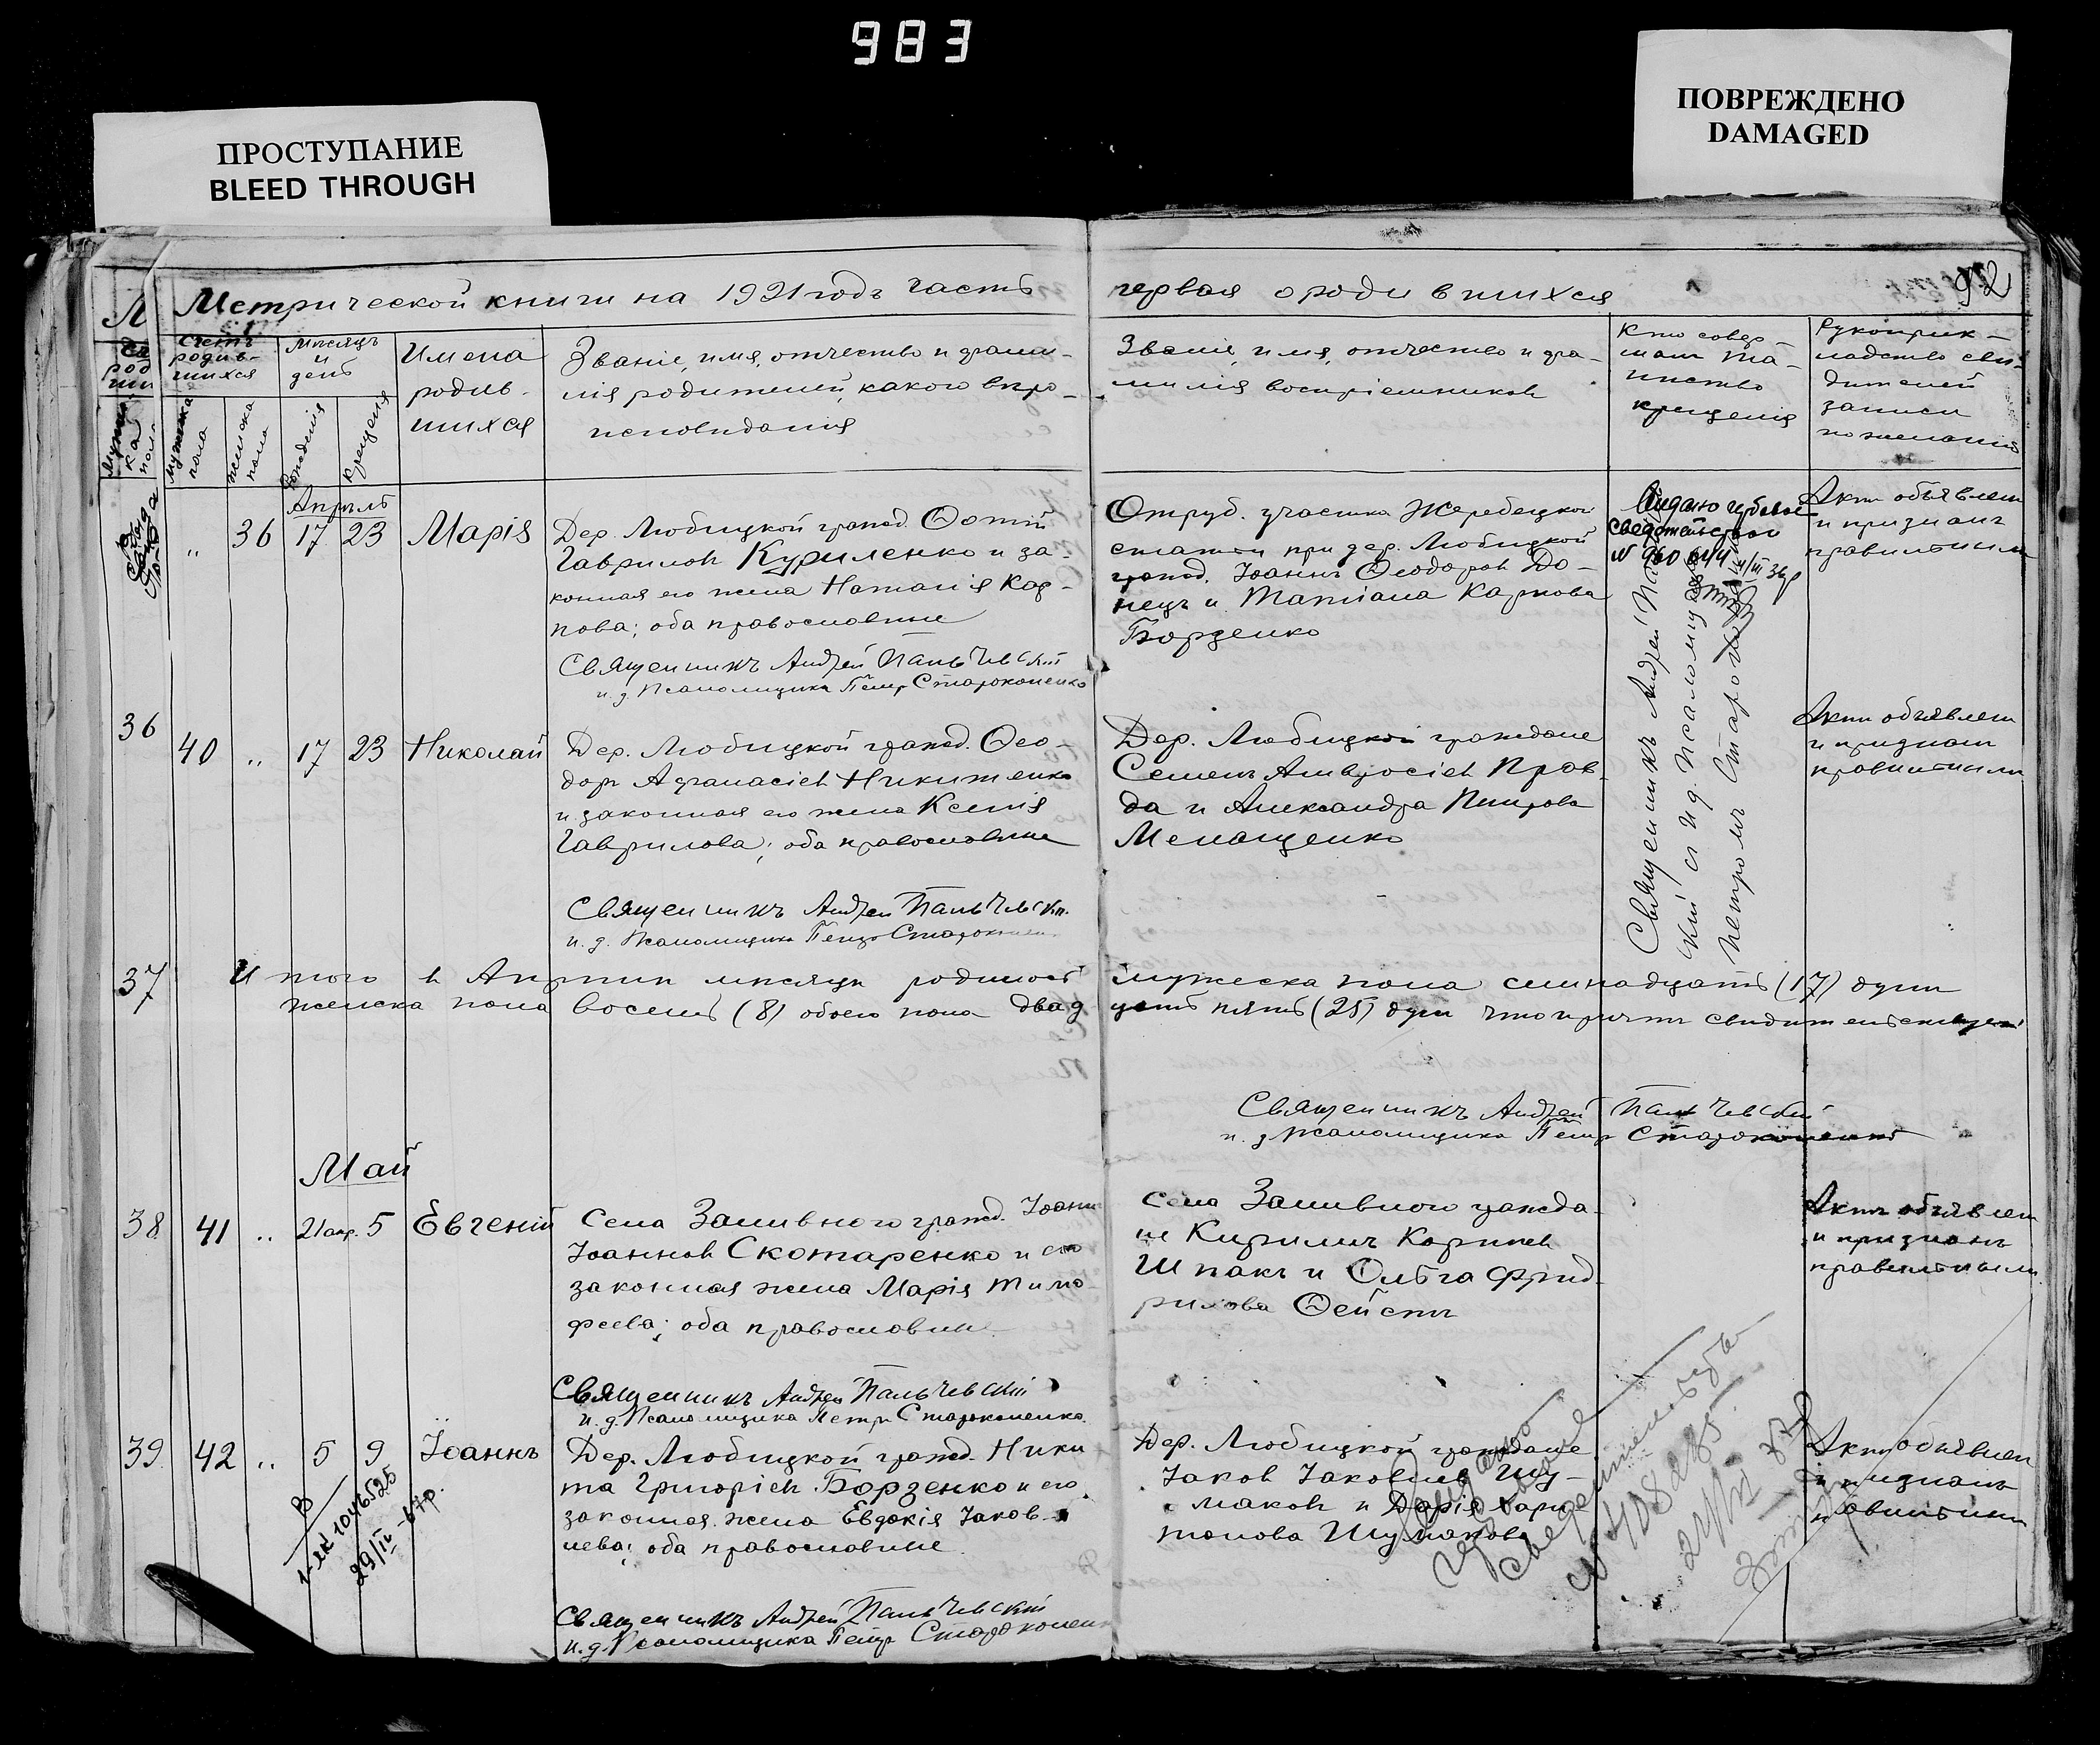 983
ПРОСТУПАНИЕ
BLEED THROUGH
ПОВРЕЖДЕНО
DAMAGED
92
Метрической книги на 1921 годъ часть первая о родившихся
Счетъ родив-
шихся
мужеска пола
женска пола
Мѣсяцъ
и
день
рожденія
крещенія
Имена
родив-
шихся
Званіе, имя, отчество и фами-
лія родителей, какого вѣро-
исповѣданія
Званіе, имя, отчество и фа-
милія воспріемниковъ
Кто совер-
шалъ та-
инство
крещенія
Рукоприк-
ладство сви-
дѣтелей
записи
по желанію
Апрѣль
" 36 17 23 Марія
Дер. Любицкой гражд. Ѳотій
Гавриловъ Куриленко и за-
конная его жена Наталія Кар-
пова; оба православные
Священникъ Андрей Пальчевскій
и. д. Псаломщика Петръ Староконенко
Отруб. участка Жеребецкой
при дер. Любицкой
гражд. Іоаннъ Ѳеодоровъ До-
нецъ и Татіана Карпова
Борзенко
Выдано гербовое
свидетельство
N 960
Священникъ Андрей
Псаломщ
Петромъ
Актъ объявленъ
и признанъ
правильнымъ
36
40 " 17 23 Николай
Дер. Любицкой гражд. Ѳео-
доръ Афанасіевъ Никитенко
и законная его жена Ксенія
Гаврилова; оба православные
Священникъ Андрей Пальчевскій
и. д. Псаломщика Петръ Староконенко
Дер. Любицкой граждане
Семенъ Амвросіевъ Прав-
да и Александра Петрова
Менащенко
Актъ объявленъ
и признанъ
правильнымъ
37
Итого въ Апрѣлѣ мѣсяцѣ родилось мужеска пола семнадцать (17) душъ
женска пола восемь (8) обоего пола двадцать пять (25) душъ что причтъ свидѣтельствуетъ
Священникъ Андрей Пальчевскій
и. д. Псаломщика Петръ Староконенко
Май
38
41 " 21 апр. 5 Евгеній
Села Заливного гражд. Іоаннъ
Іоанновъ Скотаренко и его
законная жена Марія Тимо-
феева; оба православные
Священникъ Андрей Пальчевскій
и. д. Псаломщика Петръ Староконенко
Села Заливного гражда-
не Кириллъ Корнѣевъ
Шпакъ и Ольга Фрид-
рихова Фейстъ
Актъ объявленъ
и признанъ
правильнымъ
39
42 " 5 9 Іоаннъ
1046525
29/IV-67р.
Дер. Любицкой гражд. Ники-
та Григоріевъ Борзенко и его
законная жена Евдокія Іаков-
лева; оба православные
Священникъ Андрей Пальчевскій
и. д. Псаломщика Петръ Староконенко
Дер. Любицкой граждане
Іаковъ Іаковлевъ Шу-
маковъ и Дарія Хари-
тонова Шумакова
Выдано
гербовое
свидетельство
Актъ объявленъ
и признанъ
правильнымъ